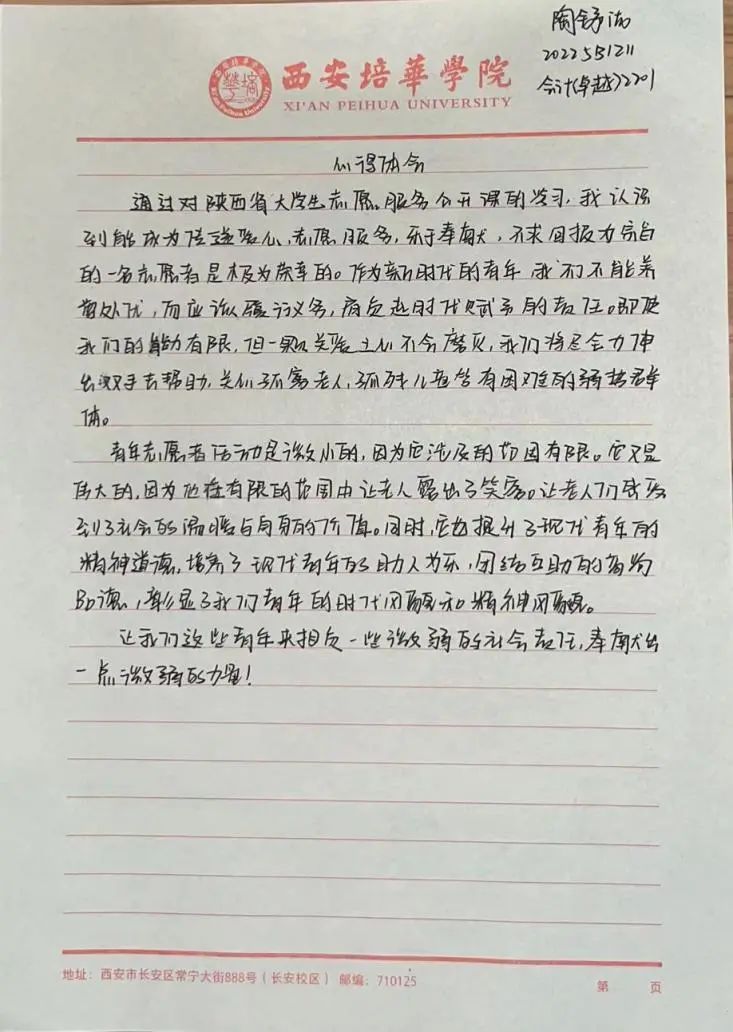 陶舒
2022531211
会计(卓越)2201
西安培華學院
XI'AN PEIHUA UNIVERSITY
心得体会
通过对陕西省大学生志愿服务公开课的学习,我认识
到能成为传递爱心、志愿服务,乐于奉献,不求回报为宗旨
的一名志愿者是极为荣幸的。作为新时代的青年,我们不能养
尊处优,而应该履行义务,肩负起时代赋予的责任。即使
我们的能力有限,但一颗关爱之心不会磨灭,我们将尽全力伸
出双手去帮助、关心孤寡老人、孤残儿童等有困难的弱势群
体。
青年志愿者活动是微小的,因为它涉及的范围有限。它又是
伟大的,因为他在有限的范围内让老人露出了笑容。让老人们感受
到了社会的温暖与自身的价值。同时,它也提升了现代青年的
精神道德,培养了现代青年的助人为乐,团结互助的高尚
品德,彰显了我们青年的时代风貌和精神风貌。
让我们这些青年来担负一些微弱的社会责任,奉献出
一点微弱的力量!
地址:西安市长安区常宁大街888号(长安校区) 邮编:710125
第 页